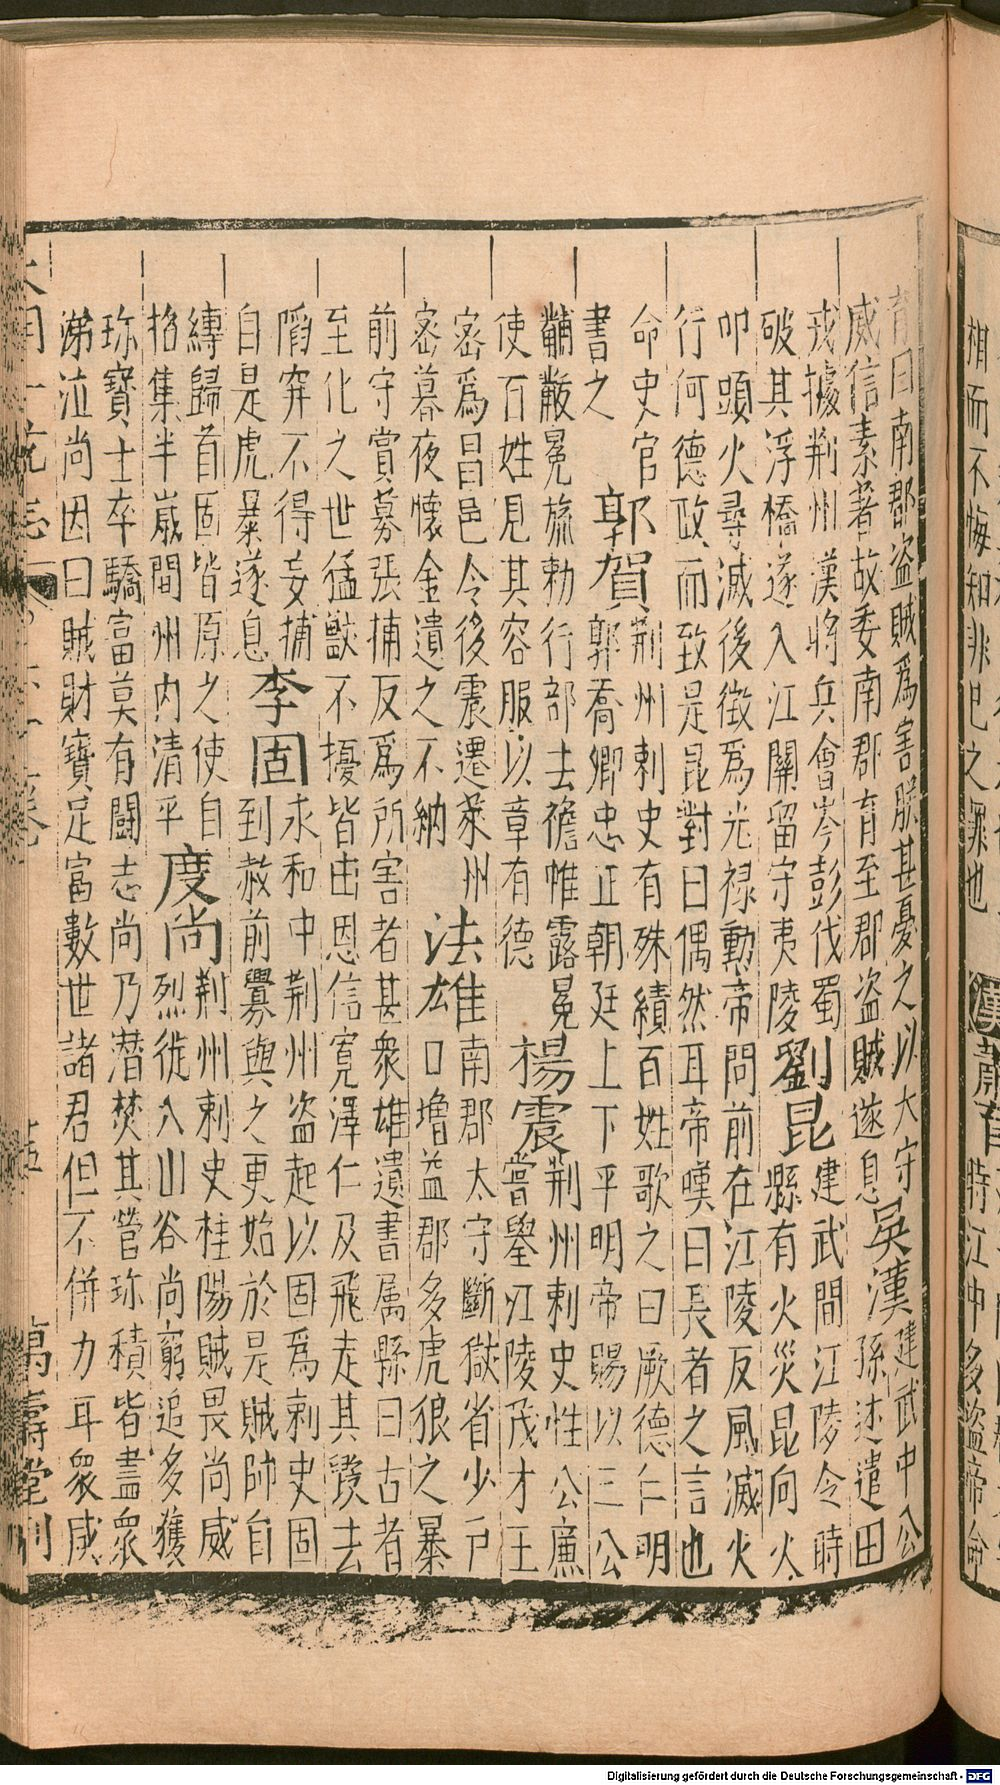 相而不悔知非巳之罪也 漢 蕭育 時江中多盗帝命
育曰南郡盗賊為害朕甚憂之以大守
威信素著故委南郡育至郡盗賊遂息
吳漢
建武中公
孫述遣田
戎據荆州漢將兵會岑彭伐蜀
破其浮橋遂入江關留守夷陵
劉昆
建武間江陵令時
縣有火災昆向火
叩頭火尋滅後徵為光禄勳帝問前在江陵反風滅火
行何德政而致是昆對曰偶然耳帝嘆曰長者之言也
命史官
書之
郭賀
荆州刺史有殊績百姓歌之曰厥德仁明
郭喬卿忠正朝廷上下平明帝賜以三公
黼黻冕旒勅行部去襜帷露冕
使百姓見其容服以章有德
楊震
荆州刺史性公廉
嘗舉江陵茂才王
密為昌邑令後震遷萊州
密暮夜懷金遺之不納
法雄
南郡太守斷獄省少户
口增益郡多虎狼之暴
前守賞募張捕反為所害者甚衆雄遺書属縣曰古者
至化之世猛獸不擾皆由恩信寛澤仁及飛走其毀去
陷穽不得妄捕
自是虎暴遂息
李固
永和中荆州盗起以固為刺史固
到赦前釁與之更始於是賊帥自
縳歸首固皆原之使自
招集半歲間州内清平
度尚
荆州刺史桂陽賊畏尚威
烈徙入山谷尚窮追多獲
珍寶士卒驕富莫有鬭志尚乃潜焚其營珍積皆盡衆
涕泣尚因曰賊財寶足富數世諸君但不併力耳衆咸
大明一統志 萬壽堂刊
Digitalisierung gefördert durch die Deutsche Forschungsgemeinschaft - DFG